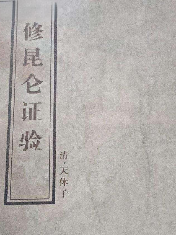 修昆仑证验
清·天休子